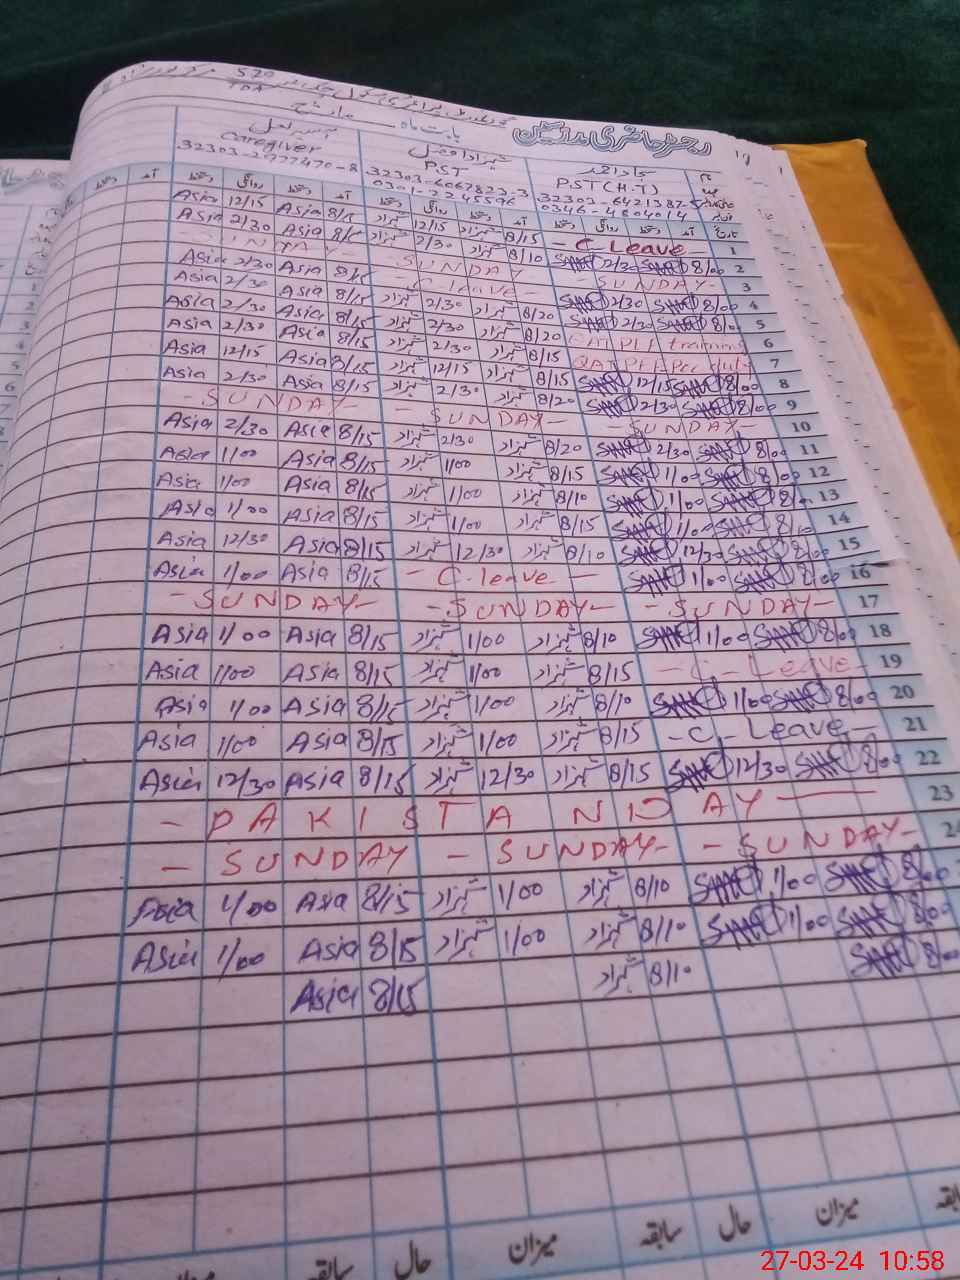 رجسٹر حاضری مدرسین
520
TDA
بابت ماہ مارچ
Caregiver PST PST (H.T)
32303-2977470-8 32303-6067822-3 32303-6421387-5
0301-2245596 0346-4804014
دستخط آمد دستخط روانگی دستخط آمد دستخط روانگی دستخط آمد دستخط روانگی دستخط آمد تاریخ
Asia 12/15 Asia 8/15 شہزاد 12/15 شہزاد 8/15 - C-Leave - 1
Asia 2/30 Asia 8/15 شہزاد 2/30 شہزاد 8/10 2/30 8/00 2
- SUNDAY - - SUNDAY - - SUNDAY - 3
Asia 2/30 Asia 8/15 - C-leave - 2/30 8/00 4
Asia 2/30 Asia 8/15 شہزاد 2/30 شہزاد 8/20 2/30 8/00 5
Asia 2/30 Asia 8/15 شہزاد 2/30 شہزاد 8/20 QAT PEF training 6
Asia 2/30 Asia 8/15 شہزاد 2/30 شہزاد 8/15 QAT PEF Pec duty 7
Asia 12/15 Asia 8/15 شہزاد 12/15 شہزاد 8/15 12/15 8/00 8
Asia 2/30 Asia 8/15 شہزاد 2/30 شہزاد 8/20 2/30 8/00 9
- SUNDAY - - SUNDAY - - SUNDAY - 10
Asia 2/30 Asia 8/15 شہزاد 2/30 شہزاد 8/20 2/30 8/00 11
Asia 1/00 Asia 8/15 شہزاد 1/00 شہزاد 8/15 1/00 8/00 12
Asia 1/00 Asia 8/15 شہزاد 1/00 شہزاد 8/10 1/00 8/00 13
Asia 1/00 Asia 8/15 شہزاد 1/00 شہزاد 8/15 1/00 8/00 14
Asia 12/30 Asia 8/15 شہزاد 12/30 شہزاد 8/10 12/30 8/00 15
Asia 1/00 Asia 8/15 - C-leave - 1/00 8/00 16
- SUNDAY - - SUNDAY - - SUNDAY - 17
Asia 1/00 Asia 8/15 شہزاد 1/00 شہزاد 8/10 1/00 8/00 18
Asia 1/00 Asia 8/15 شہزاد 1/00 شہزاد 8/15 - C-Leave - 19
Asia 1/00 Asia 8/15 شہزاد 1/00 شہزاد 8/10 1/00 8/00 20
Asia 1/00 Asia 8/15 شہزاد 1/00 شہزاد 8/15 - C-Leave - 21
Asia 12/30 Asia 8/15 شہزاد 12/30 شہزاد 8/15 12/30 8/00 22
- PAKISTAN DAY - 23
- SUNDAY - SUNDAY - - SUNDAY - 24
Asia 1/00 Asia 8/15 شہزاد 1/00 شہزاد 8/10 1/00 8/00
Asia 1/00 Asia 8/15 شہزاد 1/00 شہزاد 8/10 1/00 8/00
Asia 8/15 شہزاد 8/10 8/00
میزان سابقہ حال میزان سابقہ حال میزان سابقہ
27-03-24 10:58